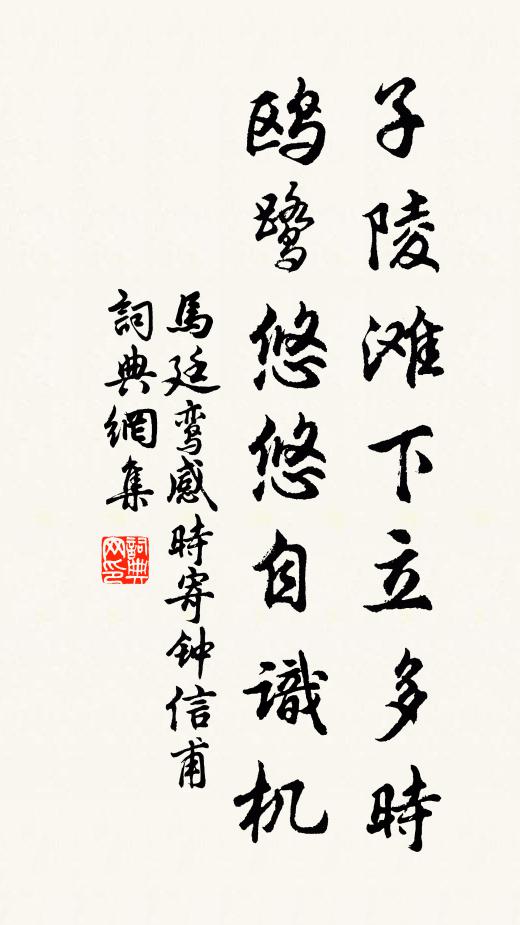 子陵滩下立多時
鸥鹭悠悠自識机
馬廷鸾感時寄钟信甫
詞典網集
詞典网印